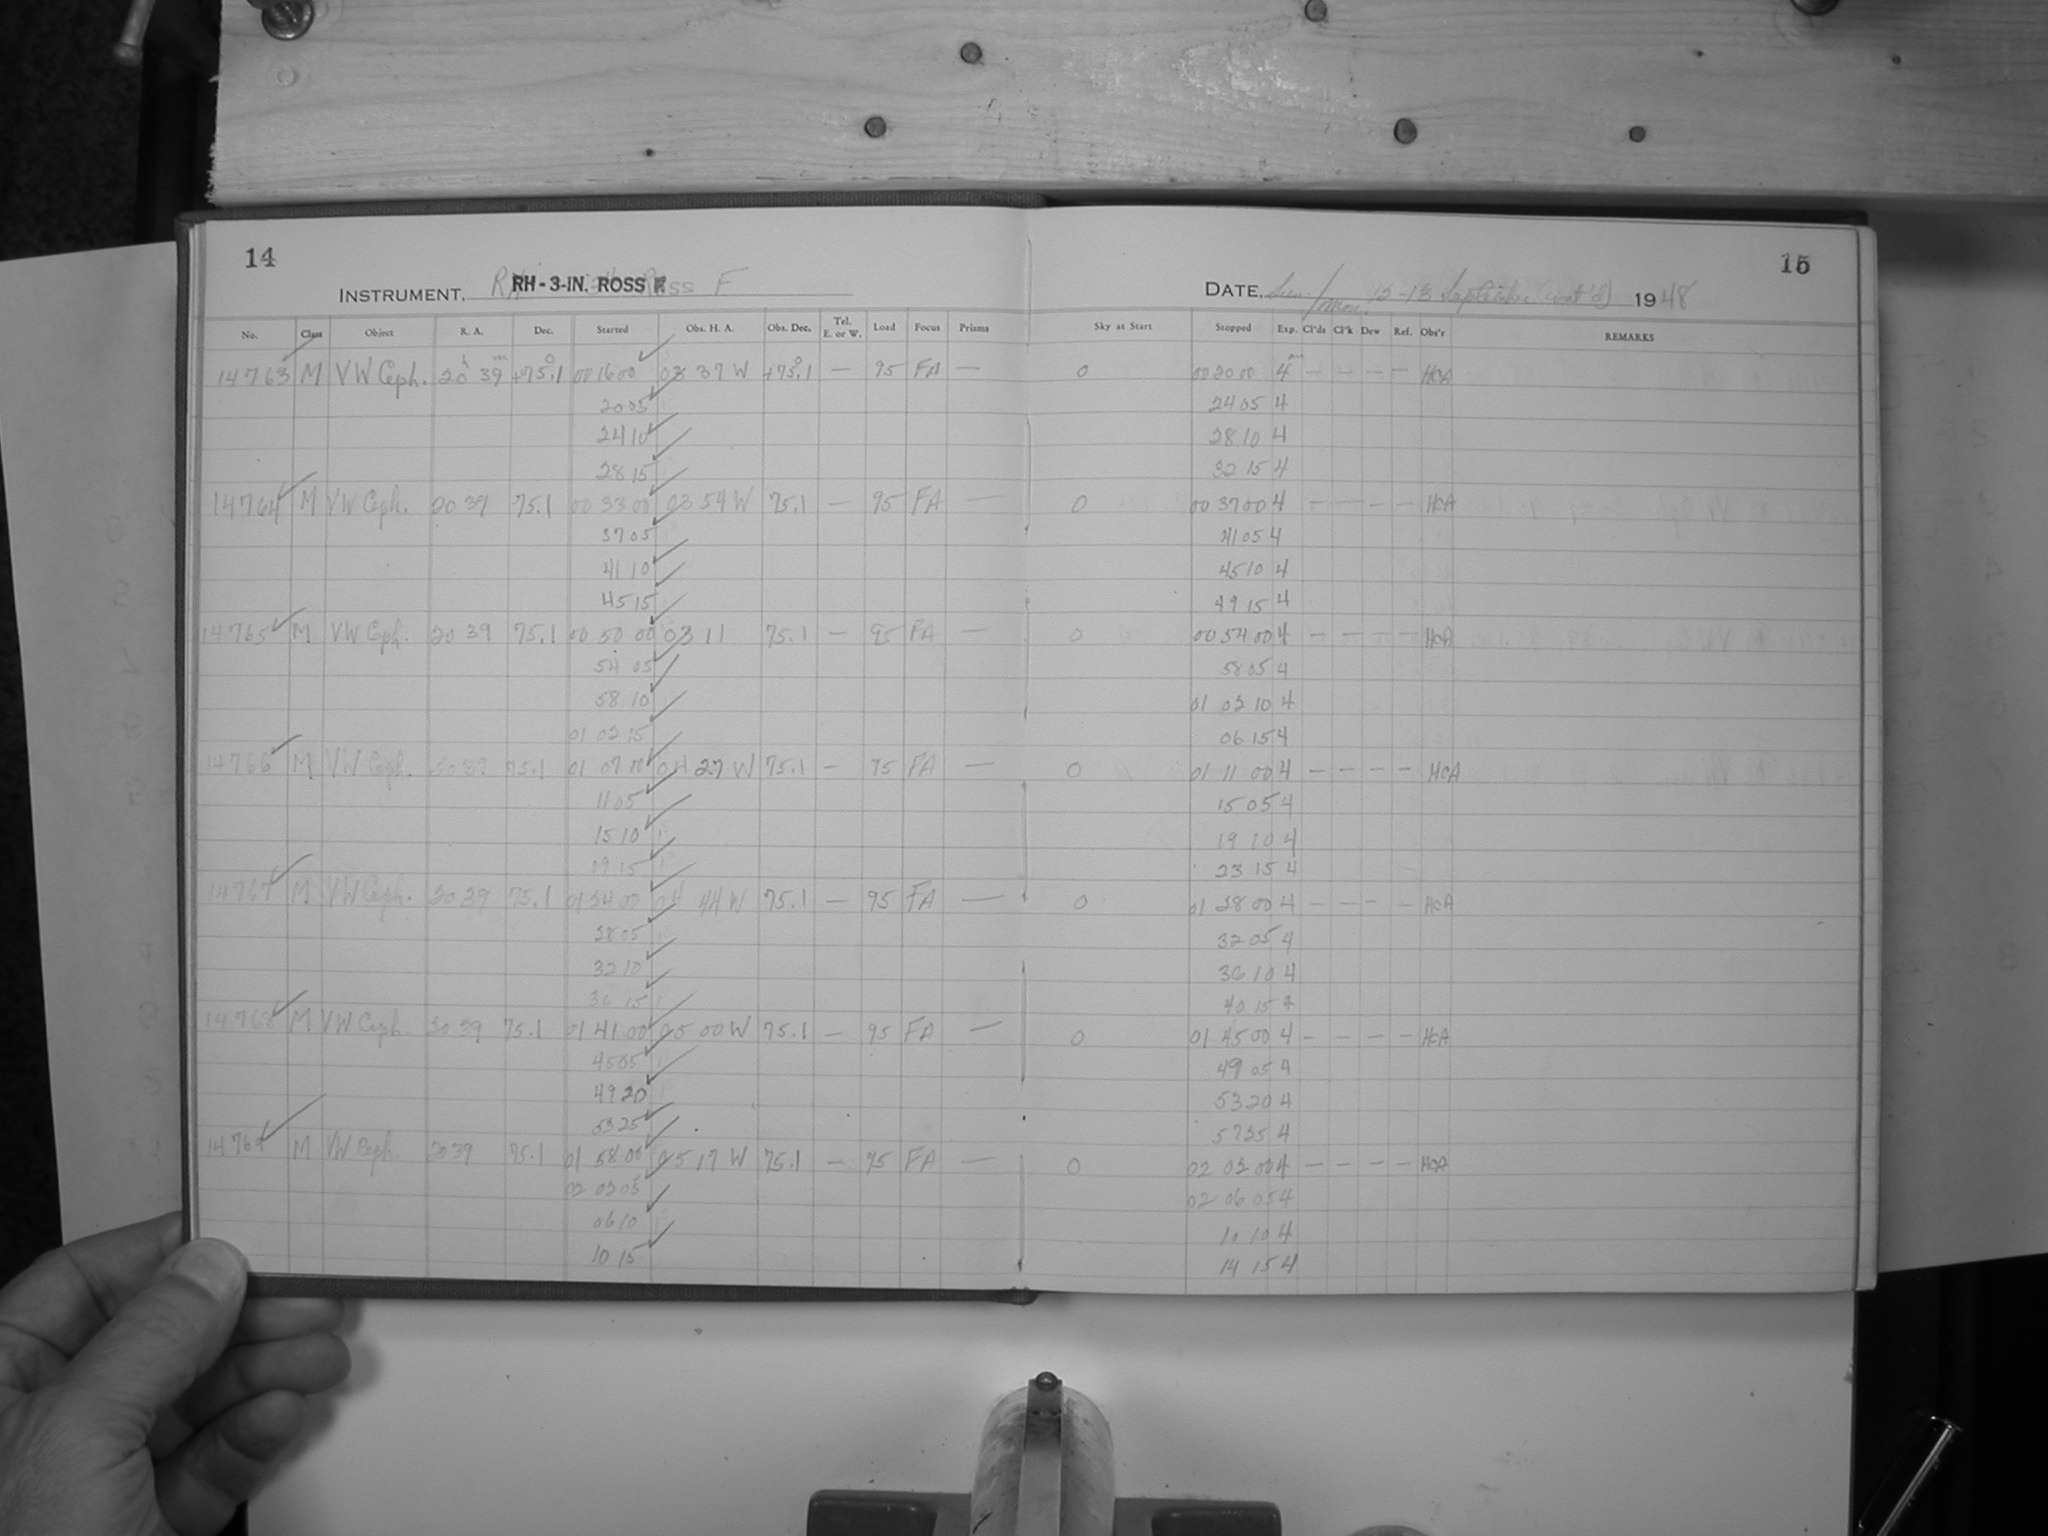 14
15
INSTRUMENT, RH-3-IN. ROSS F
DATE, Sun./Mon. 12-13 September (cont'd) 1948
No. Class Object R. A. Dec. Started Obs. H. A. Obs. Dec. Tel. E. or W. Load Focus Prisms Sky at Start Stopped Exp. Cl'ds Cl'k Dew Ref. Obs'r REMARKS
14763 M VW Ceph. 20h 39m +75.1° 00 16 00 03 37 W +75.1° — 95 FA — 0 00 20 00 4m — — — — HCA
20 05 24 05 4
24 10 28 10 4
28 15 32 15 4
14764 M VW Ceph. 20 39 75.1 00 33 00 03 54 W 75.1 — 95 FA — 0 00 37 00 4 — — — — HCA
37 05 41 05 4
41 10 45 10 4
45 15 49 15 4
14765 M VW Ceph. 20 39 75.1 00 50 00 03 11 75.1 — 95 FA — 0 00 54 00 4 — — — — HCA
54 05 58 05 4
58 10 01 02 10 4
01 02 15 06 15 4
14766 M VW Ceph. 20 39 75.1 01 07 00 04 27 W 75.1 — 95 FA — 0 01 11 00 4 — — — — HCA
11 05 15 05 4
15 10 19 10 4
19 15 23 15 4
14767 M VW Ceph. 20 39 75.1 01 24 00 04 44 W 75.1 — 95 FA — 0 01 28 00 4 — — — — HCA
28 05 32 05 4
32 10 36 10 4
36 15 40 15 4
14768 M VW Ceph. 20 39 75.1 01 41 00 05 00 W 75.1 — 95 FA — 0 01 45 00 4 — — — — HCA
45 05 49 05 4
49 20 53 20 4
53 25 57 25 4
14769 M VW Ceph. 20 39 75.1 01 58 00 05 17 W 75.1 — 95 FA — 0 02 02 00 4 — — — — HCA
02 02 05 02 06 05 4
06 10 10 10 4
10 15 14 15 4